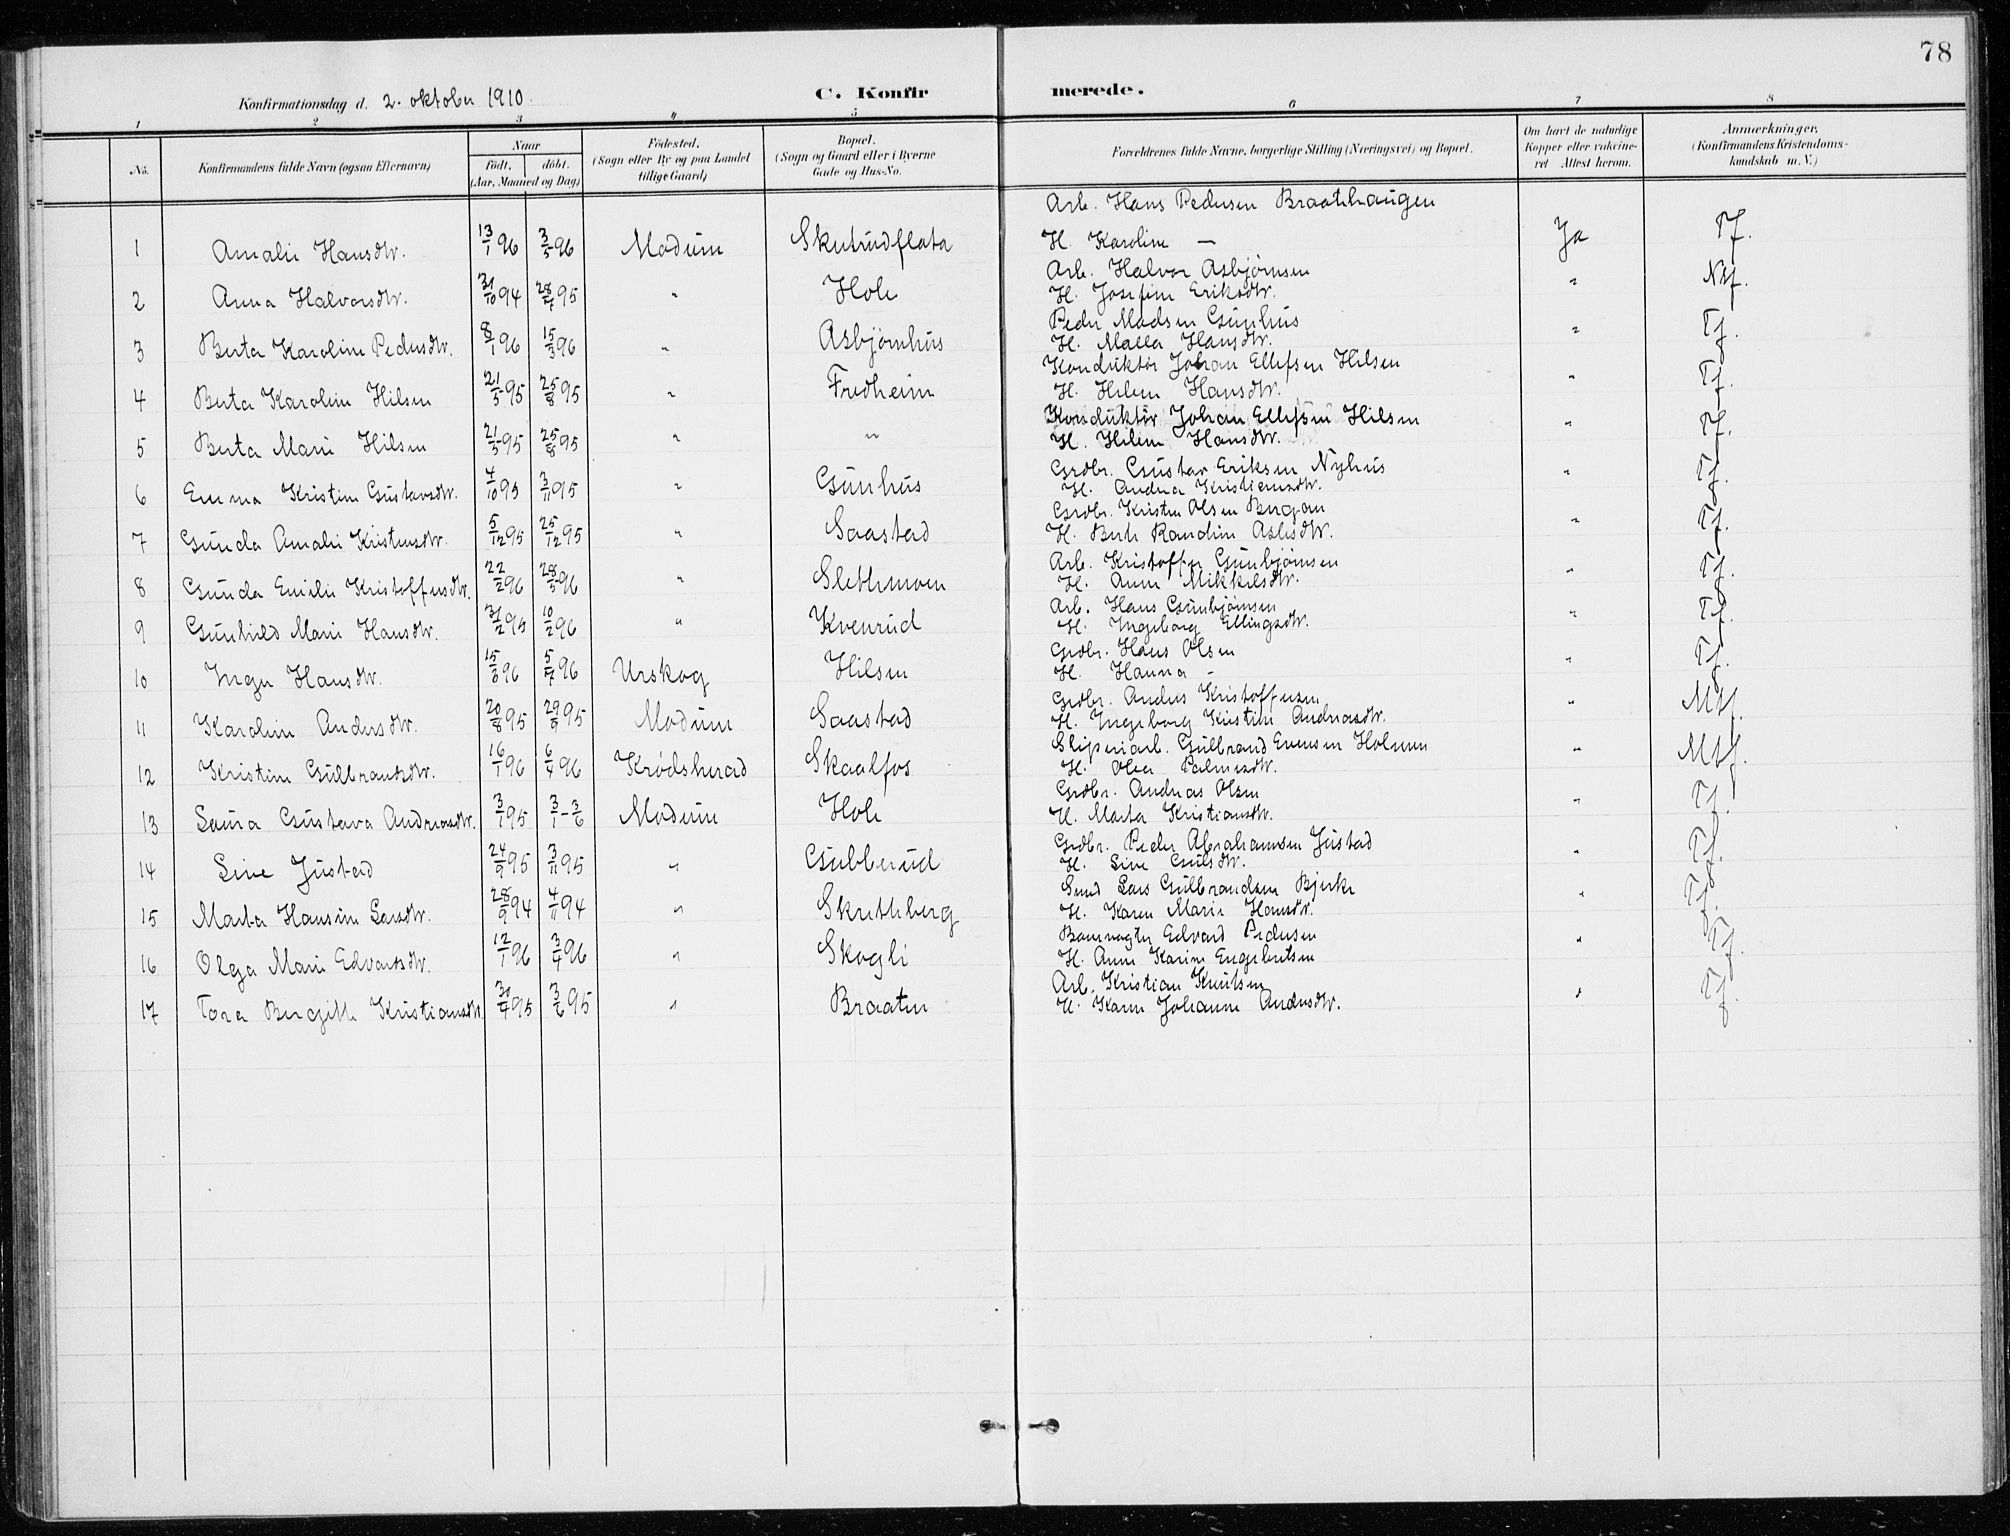 78
Konfirmationsdag d. 2. oktober 1910.
C. Konfirmerede.
1 2 3 4 5 6 7 8
No. Konfirmandens fulde Navn (ogsaa Efternavn) Naar født, døbt. (Aar, Maaned og Dag) Födested. (Sogn eller By og paa Landet tillige Gaard) Bopæl. (Sogn og Gaard eller i Byerne Gade og Hus-No. Forældrenes fulde Navne, borgerlige Stilling (Næringsvei) og Bopæl. Om havt de naturlige Kopper eller vakcineret Attest herom. Anmærkninger, (Konfirmandens Kristendomskundskab m. V.)
Arb. Hans Pedersen Braatehaugen
1 Amalie Hansdtr. 13/1 96 3/5 96 Modum Skutrudflata H. Karoline — Ja Tf.
Arb. Halvor Asbjørnsen
2 Anna Halvorsdtr. 31/10 94 28/4 95 " Hole H. Josefine Eriksdtr. " Ntf.
Peder Madsen Gunhus
3 Berta Karoline Pedersdtr. 8/1 96 15/3 96 " Asbjørnhus H. Malla Hansdtr. " Tf.
Konduktør Johan Ellefsen Hilsen
4 Berta Karoline Hilsen 21/5 95 25/8 95 " Fredheim H. Helene Hansdtr. " Tf.
Konduktør Johan Ellefsen Hilsen
5 Berta Marie Hilsen 21/5 95 25/8 95 " " H. Helene Hansdtr. " Tf.
Grdbr. Gustav Eriksen Nyhus
6 Emma Kristine Gustavsdtr. 4/10 95 3/11 95 " Gunhus H. Andrea Kristiansdtr. " Tf.
Grdbr. Kristen Olsen Bergan
7 Gunda Amalie Kristensdtr. 5/12 95 25/12 95 " Saastad H. Berte Randine Aslesdtr. " Tf.
Arb. Kristoffer Gunbjørnsen
8 Gunda Emilie Kristoffersdtr. 22/2 96 28/5 96 " Slettemoen H. Anne Mikkelsdtr. " Tf.
Arb. Hans Gunbjørnsen
9 Gunhild Marie Hansdtr. 31/12 95 10/2 96 " Kvenrud H. Ingeborg Ellingsdtr. " Tf.
Grdbr. Hans Olsen
10 Inger Hansdtr. 15/3 96 5/4 96 Urskog Hilsen H. Hanna — " Tf.
Grdbr. Anders Kristoffersen
11 Karoline Andersdtr. 20/8 95 29/9 95 Modum Saastad H. Ingeborg Kristine Andreasdtr. " Mtf.
Sliperiarb. Gulbrand Evensen Holmen
12 Kristine Gulbrandsdtr. 16/1 96 6/4 96 Krødsherad Skaalfos H. Olea Palmesdtr. " Mtf.
Grdbr. Andreas Olsen
13 Laura Gustava Andreasdtr. 3/1 95 3/1 - 3/6 Modum Hole H. Marta Kristiansdtr. " Tf.
Grdbr. Peder Abrahamsen Justad
14 Sine Justad 24/9 95 3/11 95 " Gubberud H. Sine Gulsdtr. " Tf.
Smed Lars Gulbrandsen Bjerke
15 Marta Hansine Larsdtr. 28/9 94 4/11 94 " Skretteberg H. Karen Marie Hansdtr. " Tf.
Banevogter Edvard Pedersen
16 Olga Marie Edvartsdtr. 12/1 96 3/4 96 " Skogli H. Anne Karine Engebretsen " Tf.
Arb. Kristian Knutsen
17 Tora Bergitte Kristiansdtr. 30/4 95 3/6 95 " Braaten H. Karen Johanne Andersdtr. " Tf.